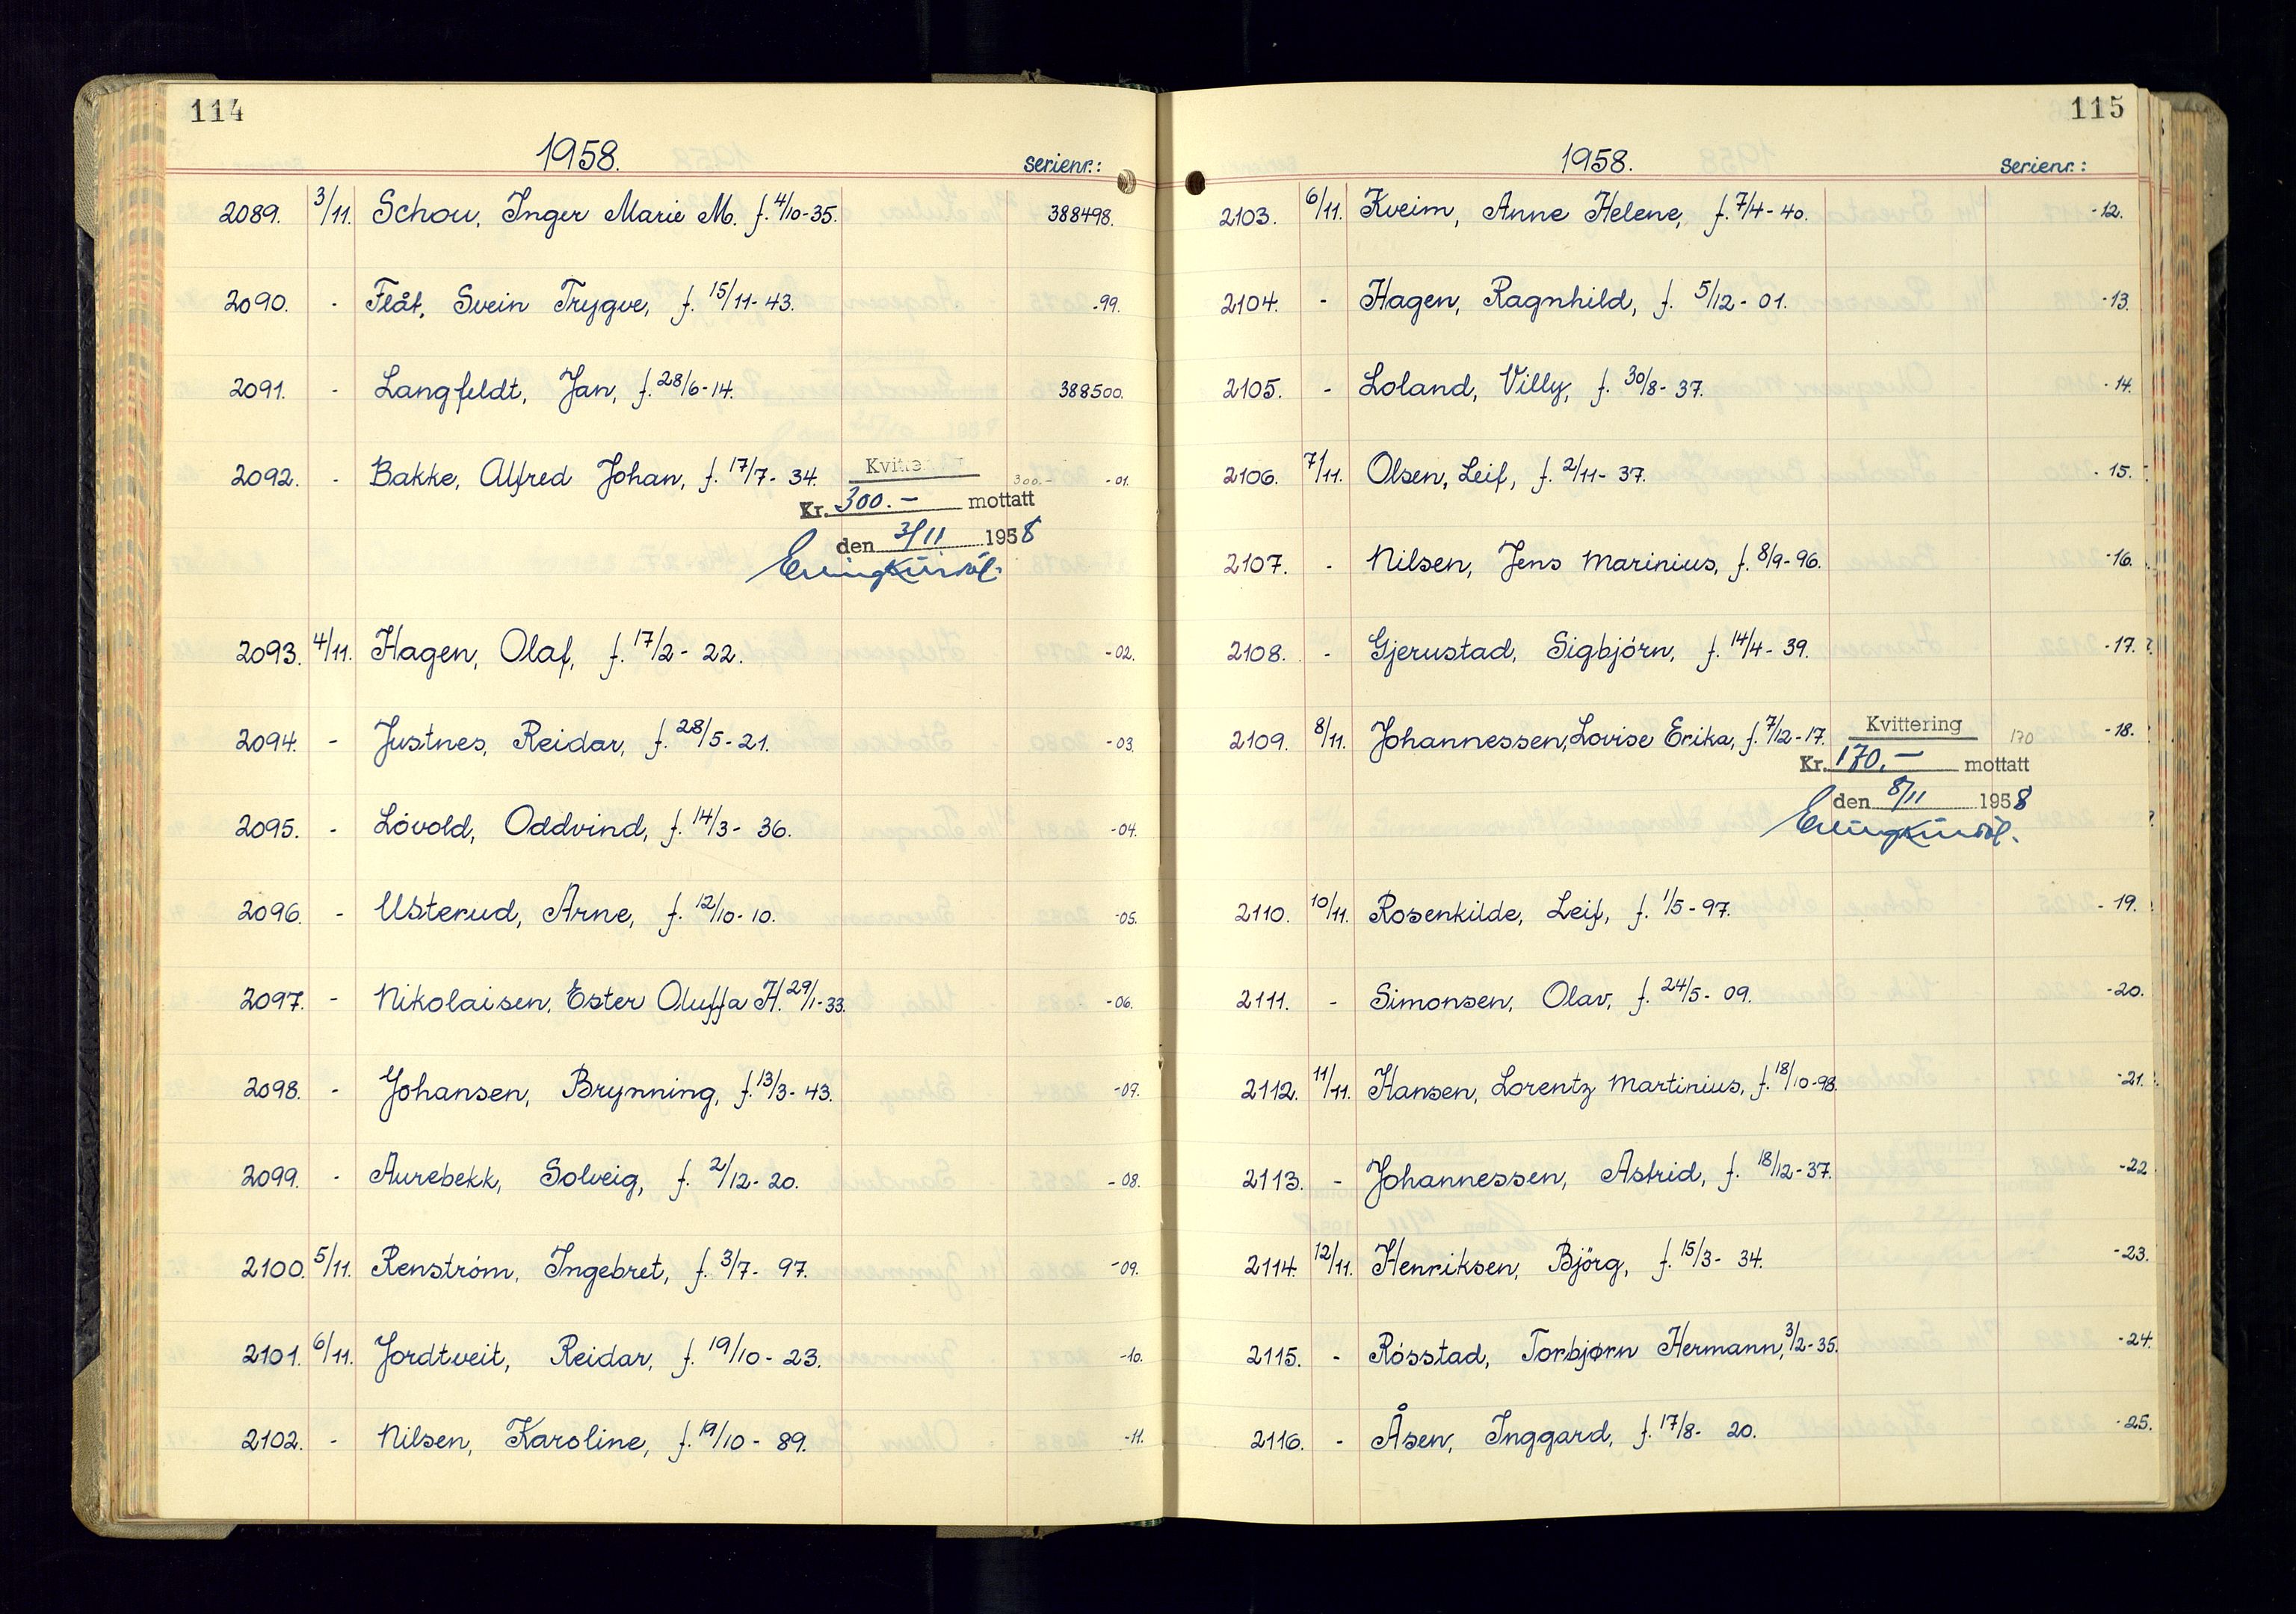 114
1958.
Serienr.:
2089. 3/11. Schou, Inger Marie M. f. 4/10-35. 388498.
2090. - Flåt, Svein Trygve, f. 15/11-43. -99.
2091. - Langfeldt, Jan, f. 28/6-14. 388500.
2092. - Bakke, Alfred Johan, f. 17/7-34. Kvittering 300.- -01.
Kr. 300.- mottatt
den 3/11 1958
2093. 4/11. Hagen, Olaf, f. 17/2-22. -02.
2094. - Justnes, Reidar, f. 28/5-21. -03.
2095. - Lövold, Oddvind, f. 14/3-36. -04.
2096. - Usterud, Arne, f. 12/10-10. -05.
2097. - Nikolaisen, Ester Oluffa H. 29/1-33. -06.
2098. - Johansen, Brynning, f. 13/3-43. -07.
2099. - Aurebekk, Solveig, f. 2/12-20. -08.
2100. 5/11. Renström, Ingebret, f. 3/7-97. -09.
2101. 6/11. Jordtveit, Reidar, f. 19/10-23. -10.
2102. - Nilsen, Karoline, f. 19/10-89. -11.
115
1958.
Serienr.:
2103. 6/11. Kveim, Anne Helene, f. 7/4-40. -12.
2104. - Hagen, Ragnhild, f. 5/12-01. -13.
2105. - Loland, Villy, f. 30/8-37. -14.
2106. 7/11. Olsen, Leif, f. 2/11-37. -15.
2107. - Nilsen, Jens Marinius, f. 8/9-96. -16.
2108. - Gjerustad, Sigbjörn, f. 14/4-39. -17.
2109. 8/11. Johannessen, Lovise Erika, f. 7/12-17. Kvittering 170 -18.
Kr. 170.- mottatt
den 8/11 1958
2110. 10/11. Rosenkilde, Leif, f. 1/5-97. -19.
2111. - Simonsen, Olav, f. 24/5-09. -20.
2112. 11/11. Hansen, Lorentz Martinius, f. 18/10-98. -21.
2113. - Johannessen, Astrid, f. 18/12-37. -22
2114. 12/11. Henriksen, Björg, f. 15/3-34. -23.
2115. - Rösstad, Torbjørn Hermann, 3/2-35. -24.
2116. - Åsen, Inggard, f. 17/8-20. -25.